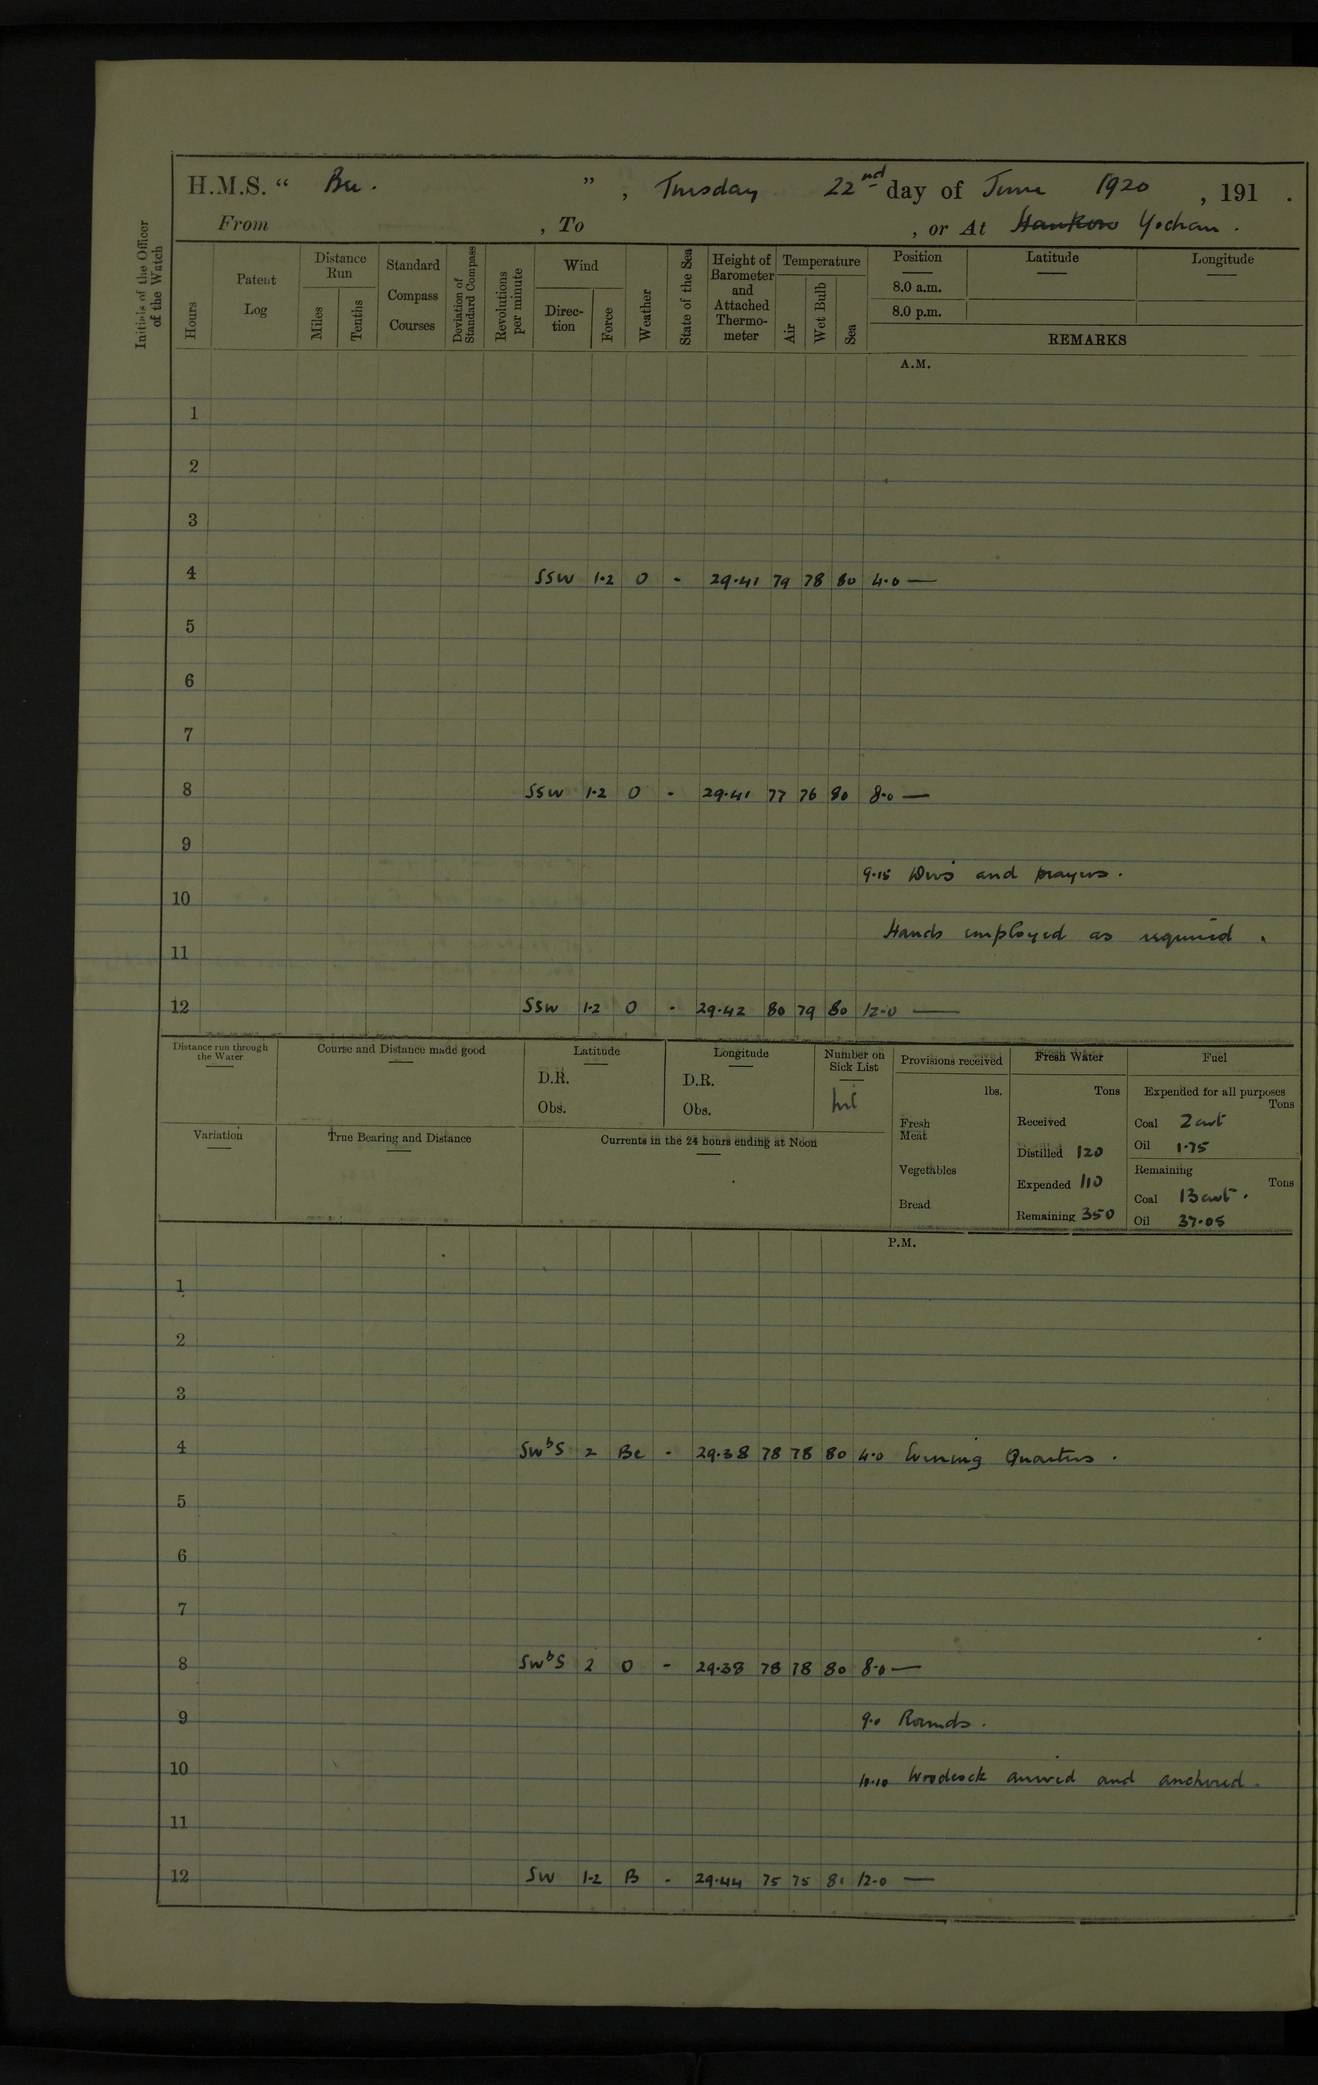 H.M.S. “ Bee. ” , Tuesday 22nd day of June 1920 , 191 .
From , To , or At Hankow Yochau.
Initials of the Officer of the Watch
Hours
Patent Log
Distance Run
Miles
Tenths
Standard Compass Courses
Deviation of Standard Compass
Revolutions per minute
Wind
Direc-tion
Force
Weather
State of the Sea
Height of Barometer and Attached Thermo-meter
Temperature
Air
Wet Bulb
Sea
Position
8.0 a.m.
8.0 p.m.
Latitude
Longitude
REMARKS
A.M.
1
2
3
4 SSW 1·2 O - 29·41 79 78 80 4·0 —
5
6
7
8 SSW 1·2 O - 29·41 77 76 80 8·0 —
9
9·15 Divs and prayers.
10
Hands employed as required.
11
12 SSW 1·2 O - 29·42 80 79 80 12·0 —
Distance run through the Water
Course and Distance made good
Latitude
D.R.
Obs.
Longitude
D.R.
Obs.
Number on Sick List
nil
Variation
True Bearing and Distance
Currents in the 24 hours ending at Noon
Provisions received
lbs.
Fresh Meat
Vegetables
Bread
Fresh Water
Tons
Received
Distilled 120
Expended 110
Remaining 350
Fuel
Expended for all purposes
Tons
Coal 2 cwt
Oil 1·75
Remaining
Tons
Coal 13 cwt.
Oil 37·05
P.M.
1
2
3
4 SWbS 2 Bc - 29·38 78 78 80 4·0 Evening Quarters.
5
6
7
8 SWbS 2 O - 29·38 78 78 80 8·0 —
9 9·0 Rounds.
10 10·10 Woodcock arrived and anchored.
11
12 SW 1·2 B - 29·44 75 75 81 12·0 —